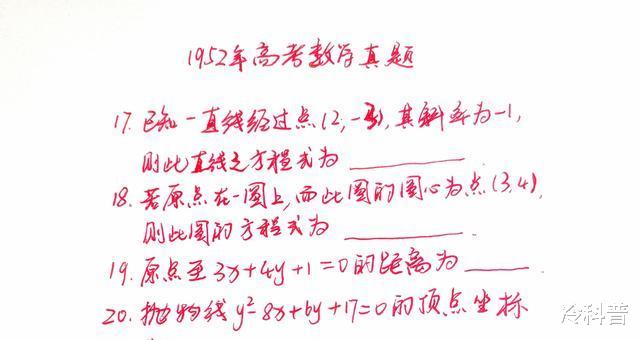 1952年高考数学真题
17. 已知一直线经过点(2,-3),其斜率为-1,
则此直线之方程式为
18. 若原点在一圆上,而此圆的圆心为点(3,4),
则此圆的方程式为
19. 原点至3x+4y+1=0的距离为
20. 抛物线y²-8x+6y+17=0的顶点坐标
冷科普